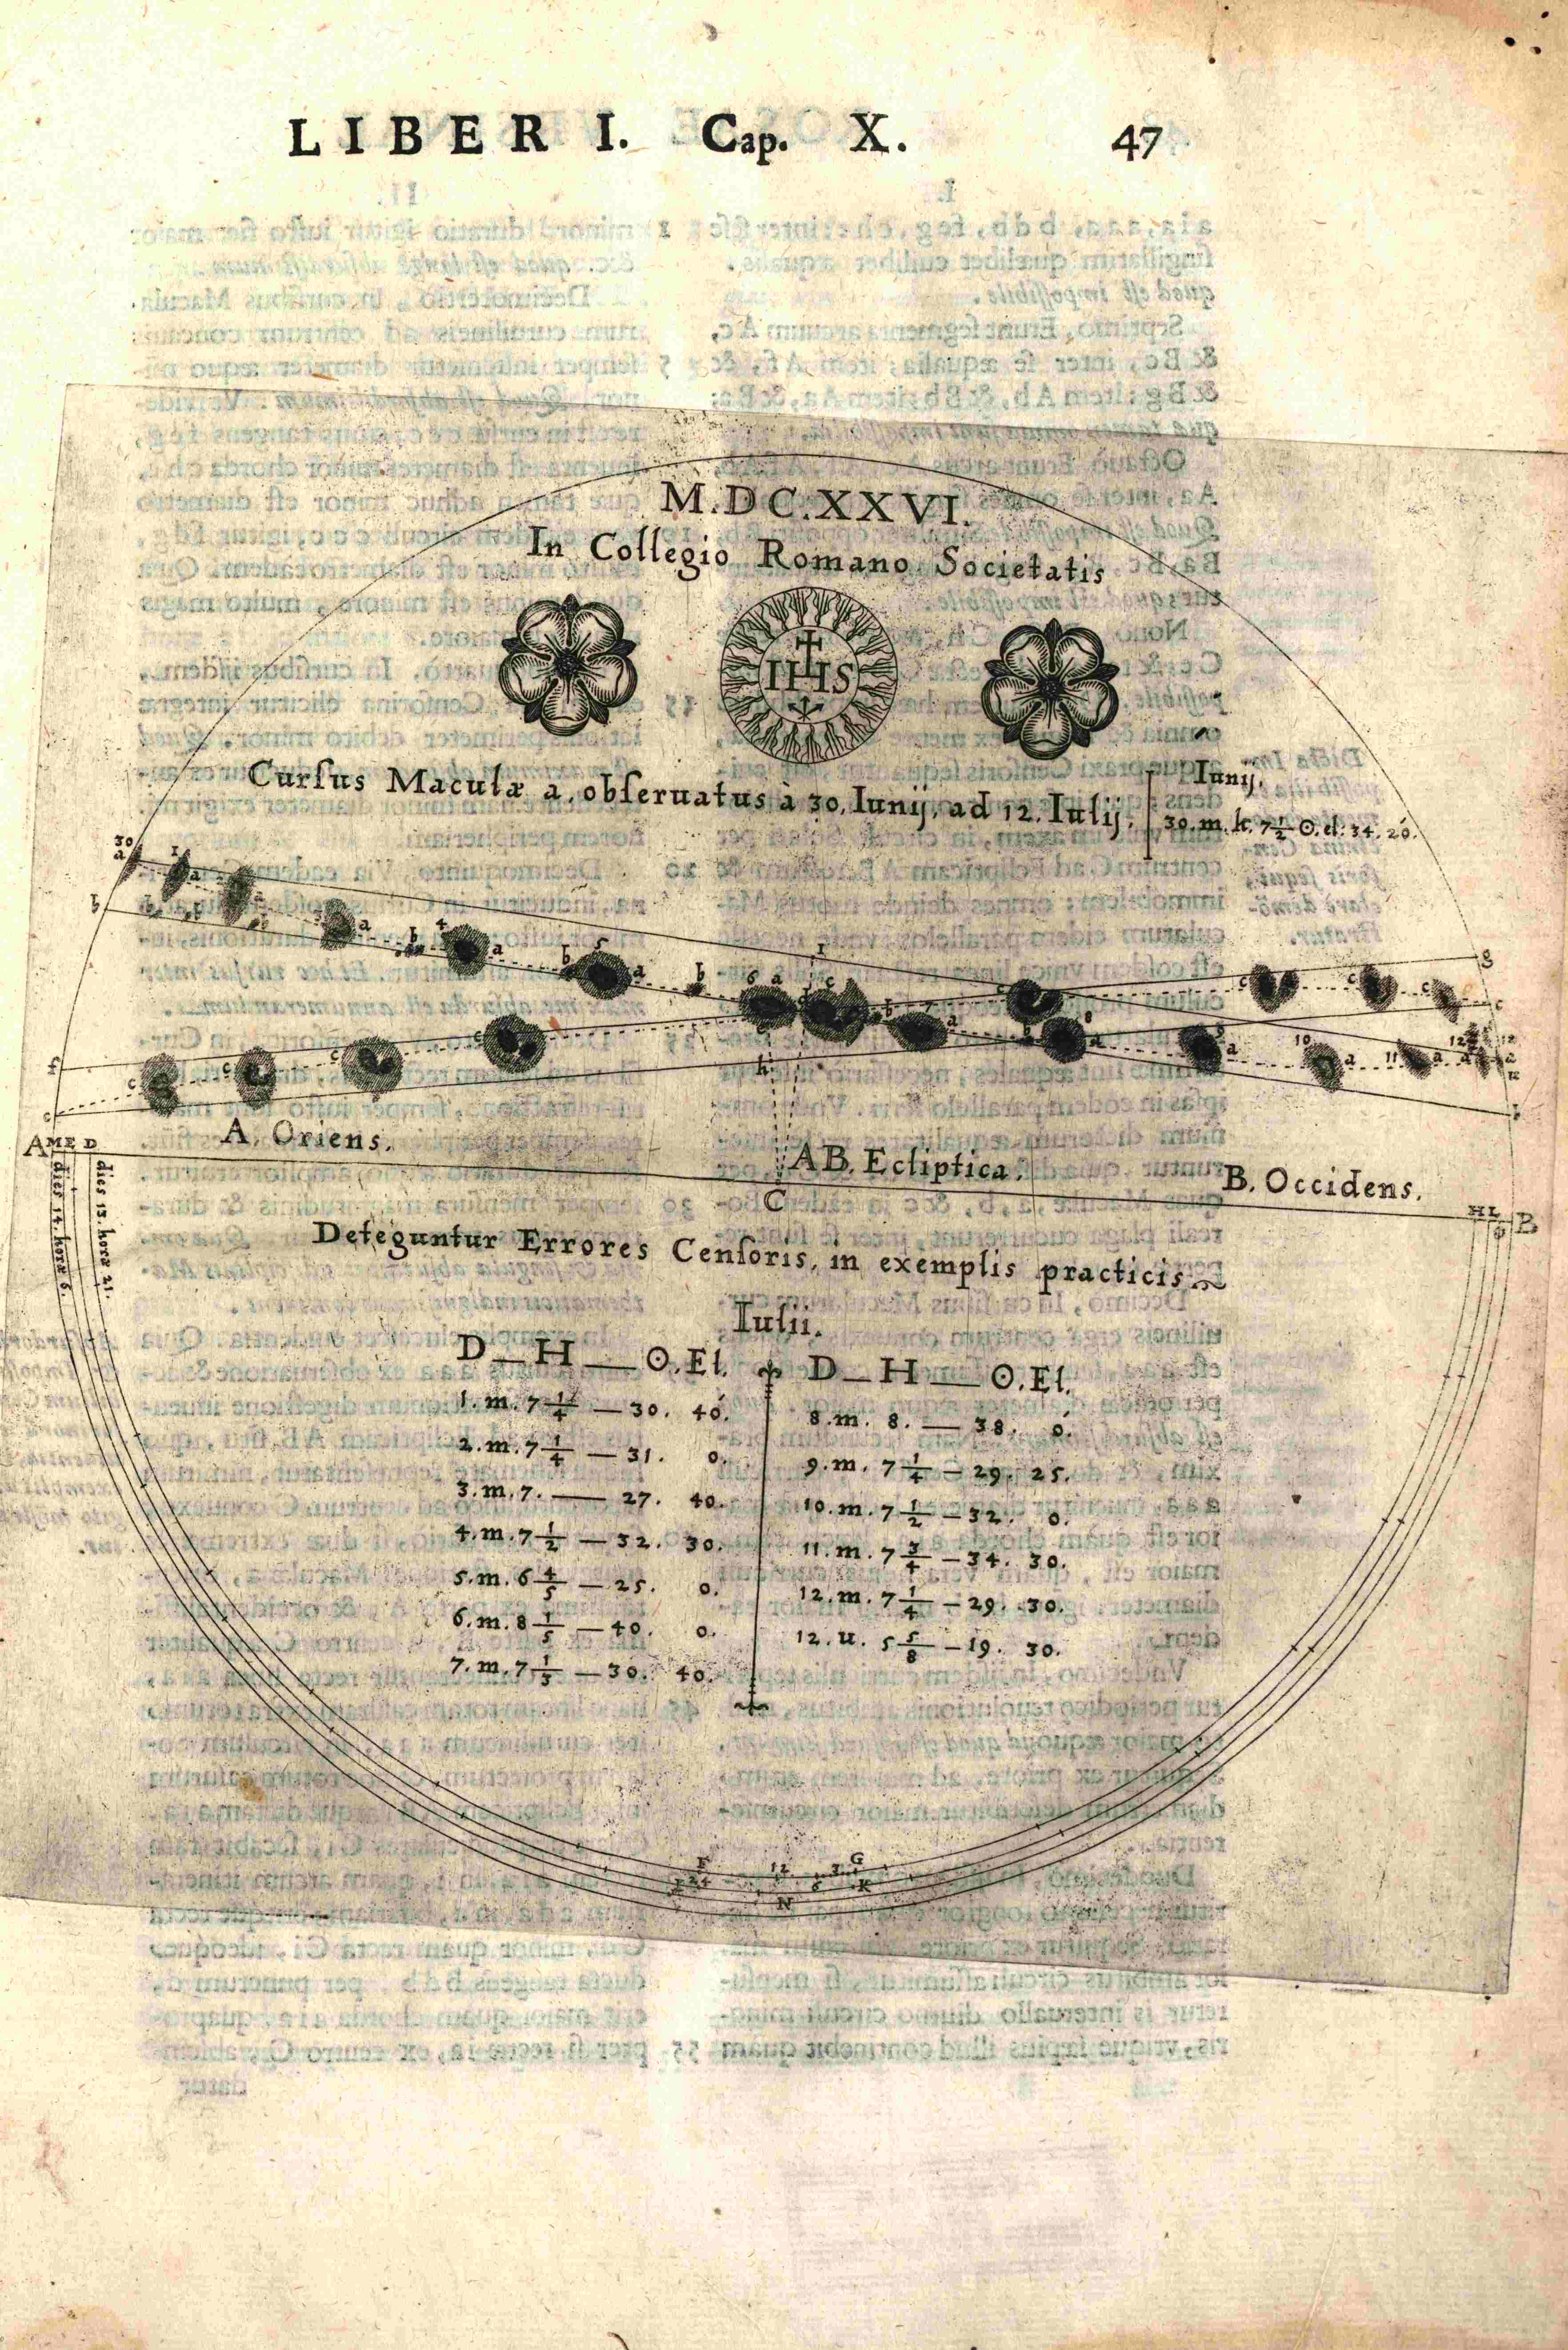 LIBER I. Cap. X. 47
M.DC.XXVI.
In Collegio Romano Societatis
IHS
Cursus Maculæ a, obseruatus à 30. Iunij, ad 12. Iulij.
Iunij.
30. m. h. 7 1/2 ☉. el. 34. 20.
30
a
1
a
b
a
b
4
a
b
5
a
b
6
a
c
b
7
a
I
c
b
8
a
c
c
c
g
c
9
a
10
a
11
a
12
a
b
f
c
c
c
c
e
h
A M E D
A. Oriens.
AB. Ecliptica.
B. Occidens.
C
H L
B
dies 14. horæ 6.
dies 13. horæ 21.
Deteguntur Errores Censoris, in exemplis practicis.
Iulii.
D — H — ☉. El.
1. m. 7 1/4 — 30. 40.
2. m. 7 1/4 — 31. 0.
3. m. 7. — 27. 40.
4. m. 7 1/2 — 32. 30.
5. m. 6 4/5 — 25. 0.
6. m. 8 1/5 — 40. 0.
7. m. 7 1/3 — 30. 40.
D — H — ☉. El.
8. m. 8. — 38. 0.
9. m. 7 1/4 — 29. 25.
10. m. 7 1/2 — 32. 0.
11. m. 7 3/4 — 34. 30.
12. m. 7 1/4 — 29. 30.
12. u. 5 5/8 — 19. 30.
F 12 3 G
I 24 6 K
N